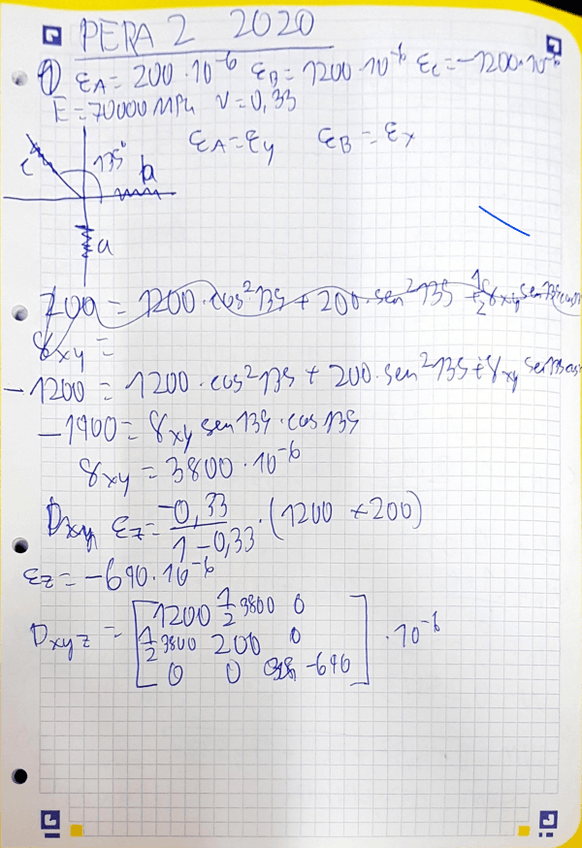 PERA 2 2020
1) εA = 200 · 10^-6 εB = 1200 · 10^-6 εC = -1200 · 10^-6
E = 70000 MPa ν = 0,33
εA = εy εB = εx
c 135° b
a
200 = 1200 · cos²135 + 200 · sen²135 + 1/2 γxy sen135
γxy =
-1200 = 1200 · cos²135 + 200 · sen²135 + γxy sen135 cos
-1900 = γxy sen 135 · cos 135
γxy = 3800 · 10^-6
Dxy εz = -0,33 / 1-0,33 · (1200 + 200)
εz = -690 · 10^-6
Dxyz = [1200 1/2 3800 0
1/2 3800 200 0
0 0 -690] · 10^-6